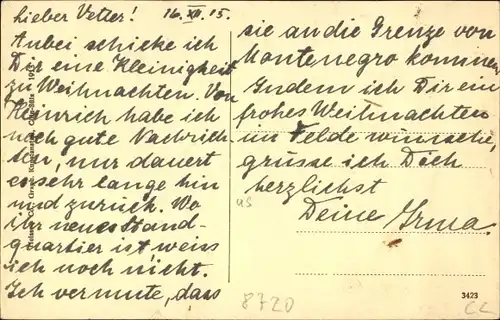 16. XII. 15.
Lieber Vetter!
Anbei schicke ich
Dir eine Kleinigkeit
zu Weihnachten. Von
Heinrich habe ich
noch gute Nachrich-
ten, nur dauert
es sehr lange hin
und zurück. Wo
ihr neues Stand-
quartier ist weiss
ich noch nicht.
Ich vermute, dass
sie an die Grenze von
Montenegro kommen.
Indem ich Dir ein
frohes Weihnachten
im Felde wünsche,
grüsse ich Dich
herzlichst
Deine Irma.
8720
3423